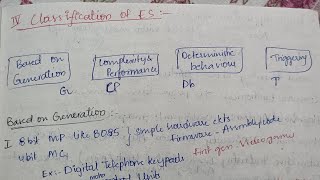 IV Classification of ES:-
Based on Generation
Complexity & Performance
Deterministic behaviour
Triggering
G
CP
Db
T
Based on Generation:-
I 8bit MP like 8085 } Simple hardware ckts
4bit MC, Firmware - Assembly code
Ex:- Digital Telephone keypads First gen Videogames
motor Units